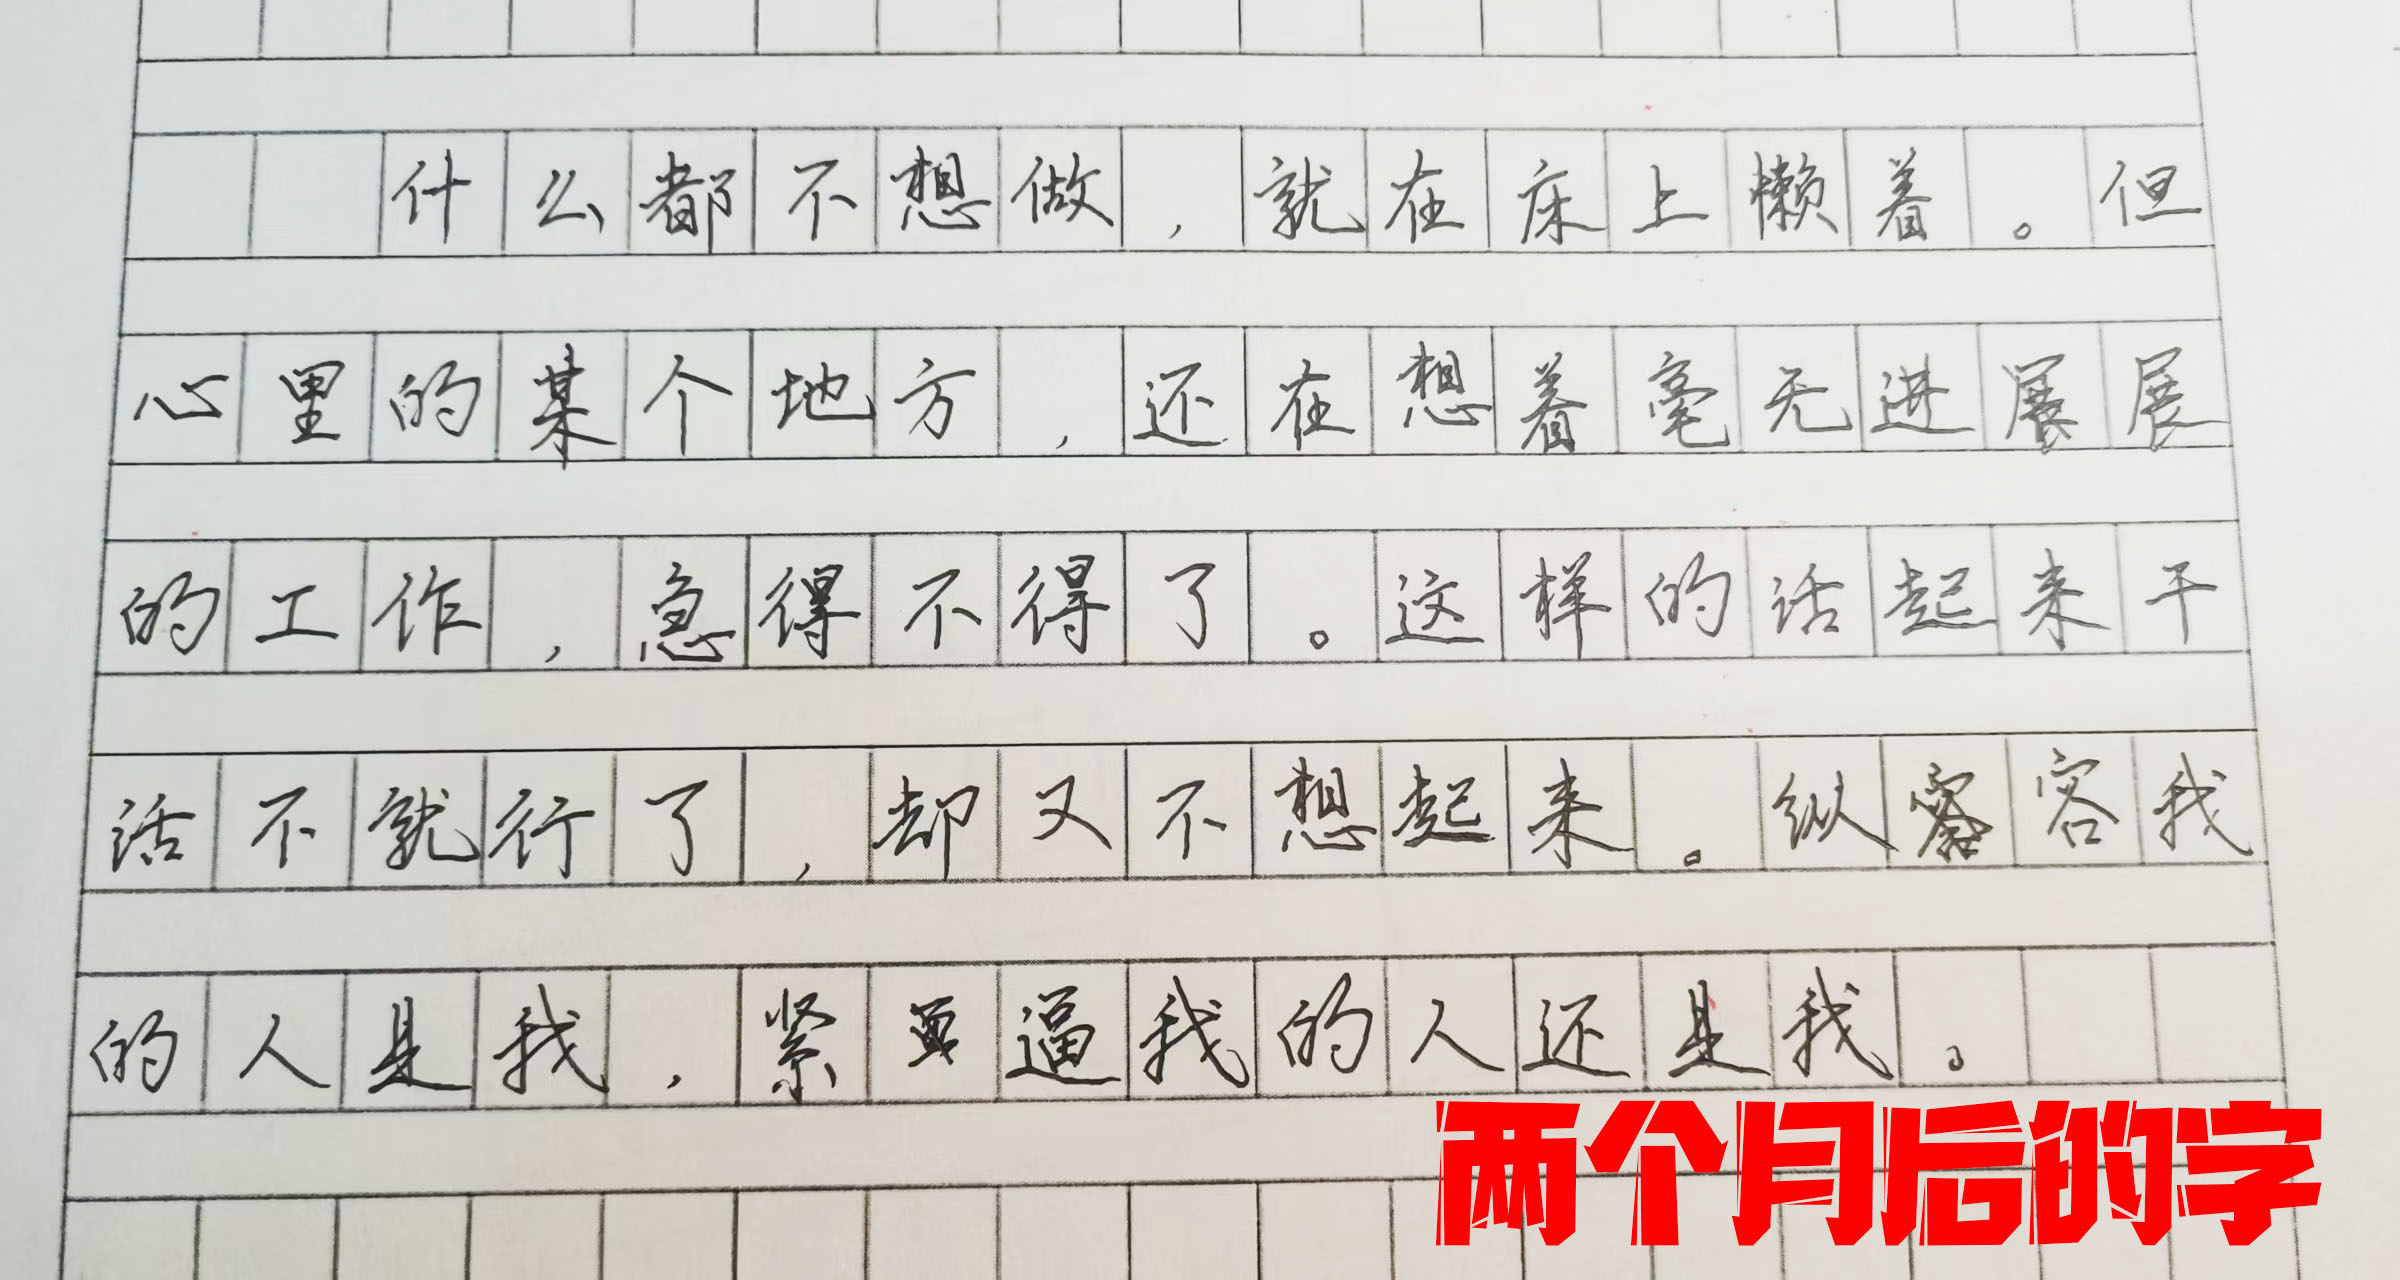 什么都不想做，就在床上懒着。但
心里的某个地方，还在想着毫无进展展
的工作，急得不得了。这样的话起来干
话不就行了，却又不想起来。纵容我
的人是我，紧逼我的人还是我。
两个月后的字